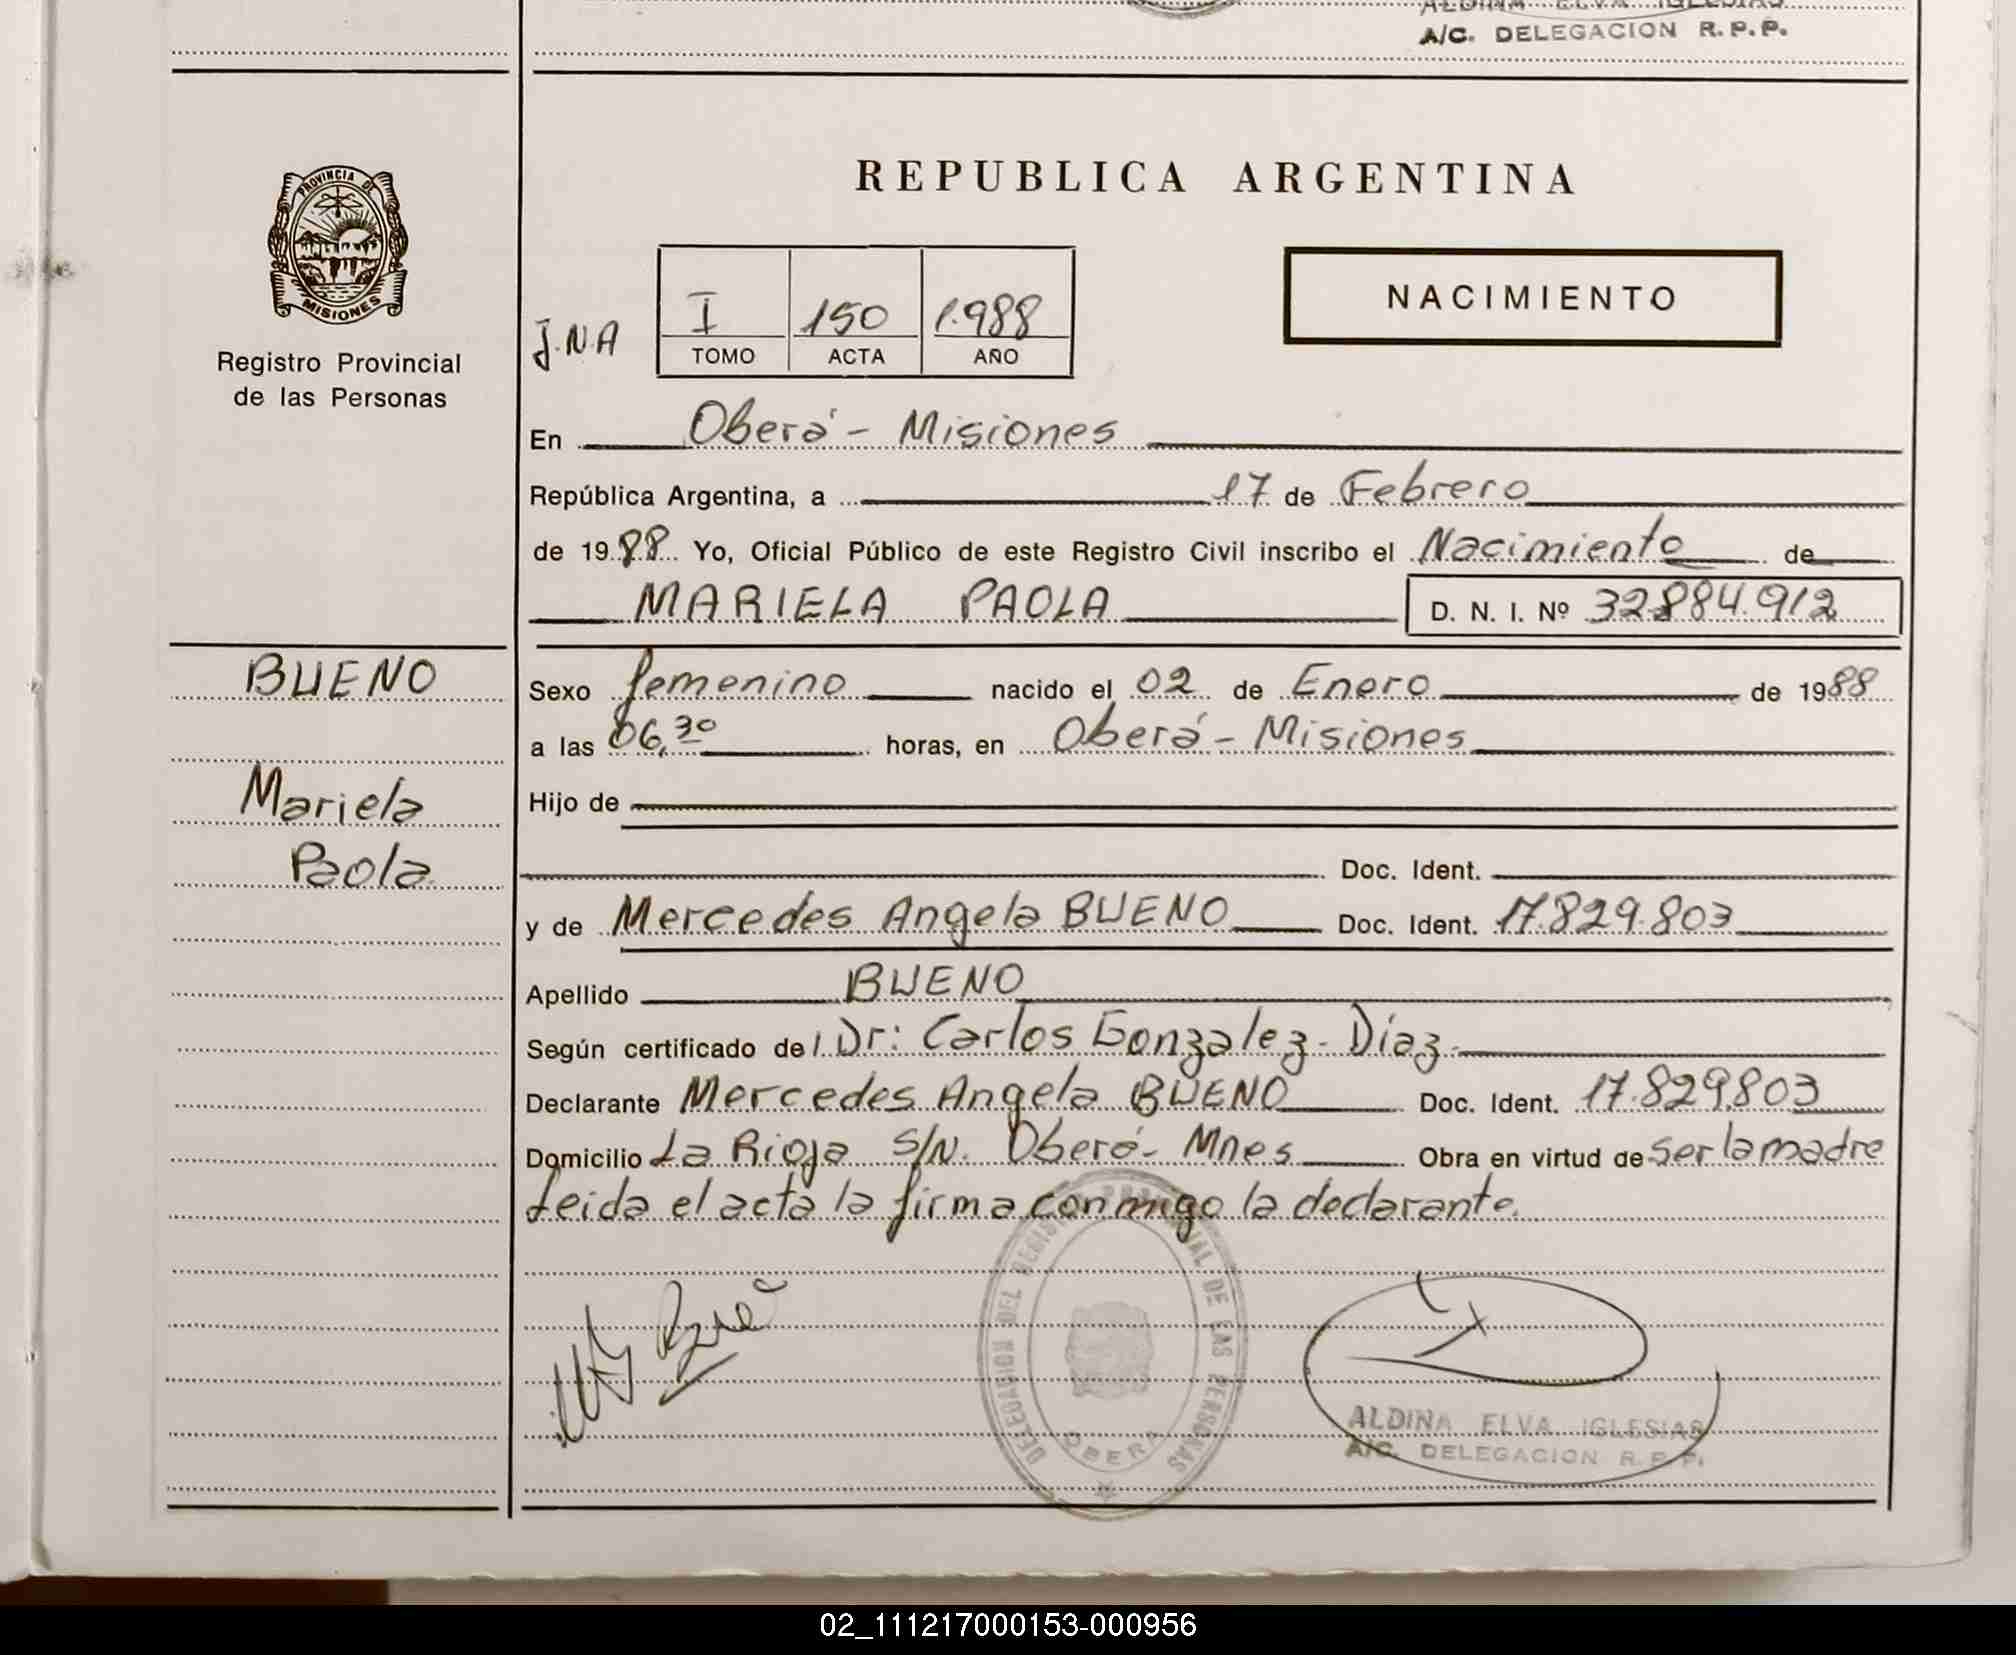 ALDINA ELVA IGLESIAS
A/C. DELEGACION R.P.P.
PROVINCIA DE
MISIONES
Registro Provincial
de las Personas
REPUBLICA ARGENTINA
NACIMIENTO
J.N.A
I 150 1.988
TOMO ACTA AÑO
En Oberá - Misiones
República Argentina, a 17 de Febrero
de 1988 Yo, Oficial Público de este Registro Civil inscribo el Nacimiento de
MARIELA PAOLA D. N. I. Nº 32.884.912
BUENO
Mariela
Paola.
Sexo femenino nacido el 02 de Enero de 1988
a las 06,30 horas, en Oberá - Misiones
Hijo de
Doc. Ident.
y de Mercedes Angela BUENO Doc. Ident. 17.829.803
Apellido BUENO
Según certificado del Dr: Carlos Gonzalez - Díaz.
Declarante Mercedes Angela BUENO Doc. Ident. 17.829.803
Domicilio La Rioja S/N. Oberá - Mnes Obra en virtud de ser la madre
Leida el acta la firma conmigo la declarante.
DELEGACION DEL REGISTRO PROVINCIAL DE LAS PERSONAS
OBERA
ALDINA ELVA IGLESIAS
A/C. DELEGACION R.P.P.
02_111217000153-000956